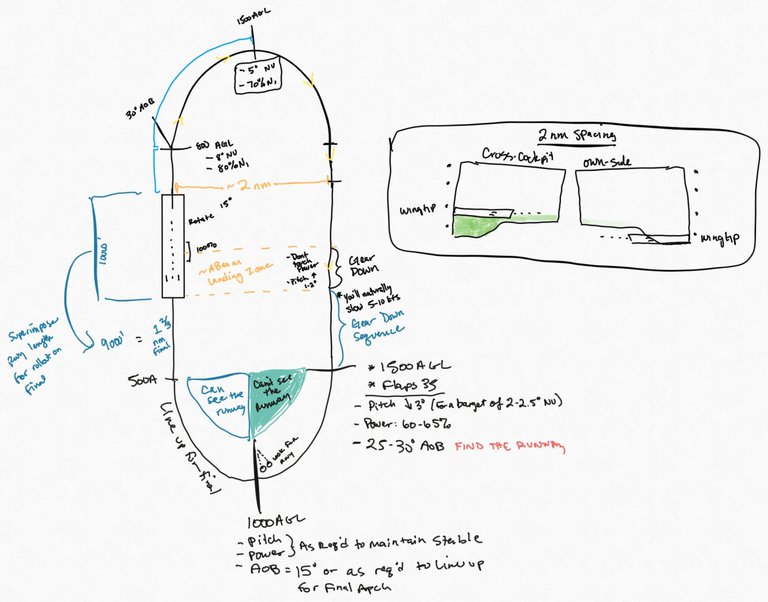 1500 AGL
- 5° NU
- 70% N1
30° AOB
800 AGL
- 8° NU
- 80% N1
~ 2 nm
Rotate 15°
100%
~ ABeam
Landing Zone
- Don't
touch
Power
- Pitch ↑
1-2°
Gear
Down
* You'll naturally
slow 5-10 kts
Gear Down
Sequence
Superimpose
Rwy length
for rollout on
Final
9000' =
nm
Final
500A
Can
see the
runway
Can't see
the
runway
Line up for
look for
rwy
* 1500 AGL
* Flaps 35
- Pitch ↓ 3° (for a target of 2-2.5° NU)
- Power: 60-65%
- 25-30° AOB FIND THE RUNWAY
1000 AGL
- Pitch
- Power } As Req'd to maintain Stable
- AOB = 15° or as req'd to line up
for Final Apch
2 nm Spacing
Cross-Cockpit
own-side
wingtip
wingtip